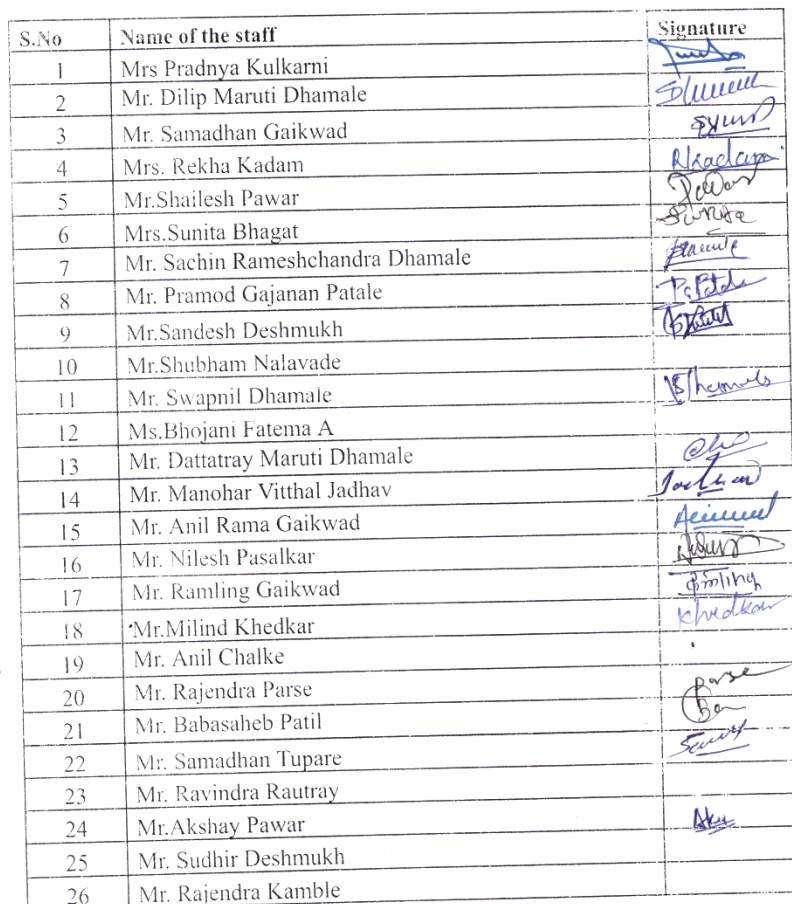 S.No Name of the staff Signature
1 Mrs Pradnya Kulkarni
2 Mr. Dilip Maruti Dhamale
3 Mr. Samadhan Gaikwad
4 Mrs. Rekha Kadam Rkadam
5 Mr.Shailesh Pawar Pawar
6 Mrs.Sunita Bhagat
7 Mr. Sachin Rameshchandra Dhamale
8 Mr. Pramod Gajanan Patale
9 Mr.Sandesh Deshmukh
10 Mr.Shubham Nalavade
11 Mr. Swapnil Dhamale
12 Ms.Bhojani Fatema A
13 Mr. Dattatray Maruti Dhamale
14 Mr. Manohar Vitthal Jadhav
15 Mr. Anil Rama Gaikwad
16 Mr. Nilesh Pasalkar
17 Mr. Ramling Gaikwad
18 Mr.Milind Khedkar Khedkar
19 Mr. Anil Chalke
20 Mr. Rajendra Parse Parse
21 Mr. Babasaheb Patil
22 Mr. Samadhan Tupare
23 Mr. Ravindra Rautray
24 Mr.Akshay Pawar
25 Mr. Sudhir Deshmukh
26 Mr. Rajendra Kamble